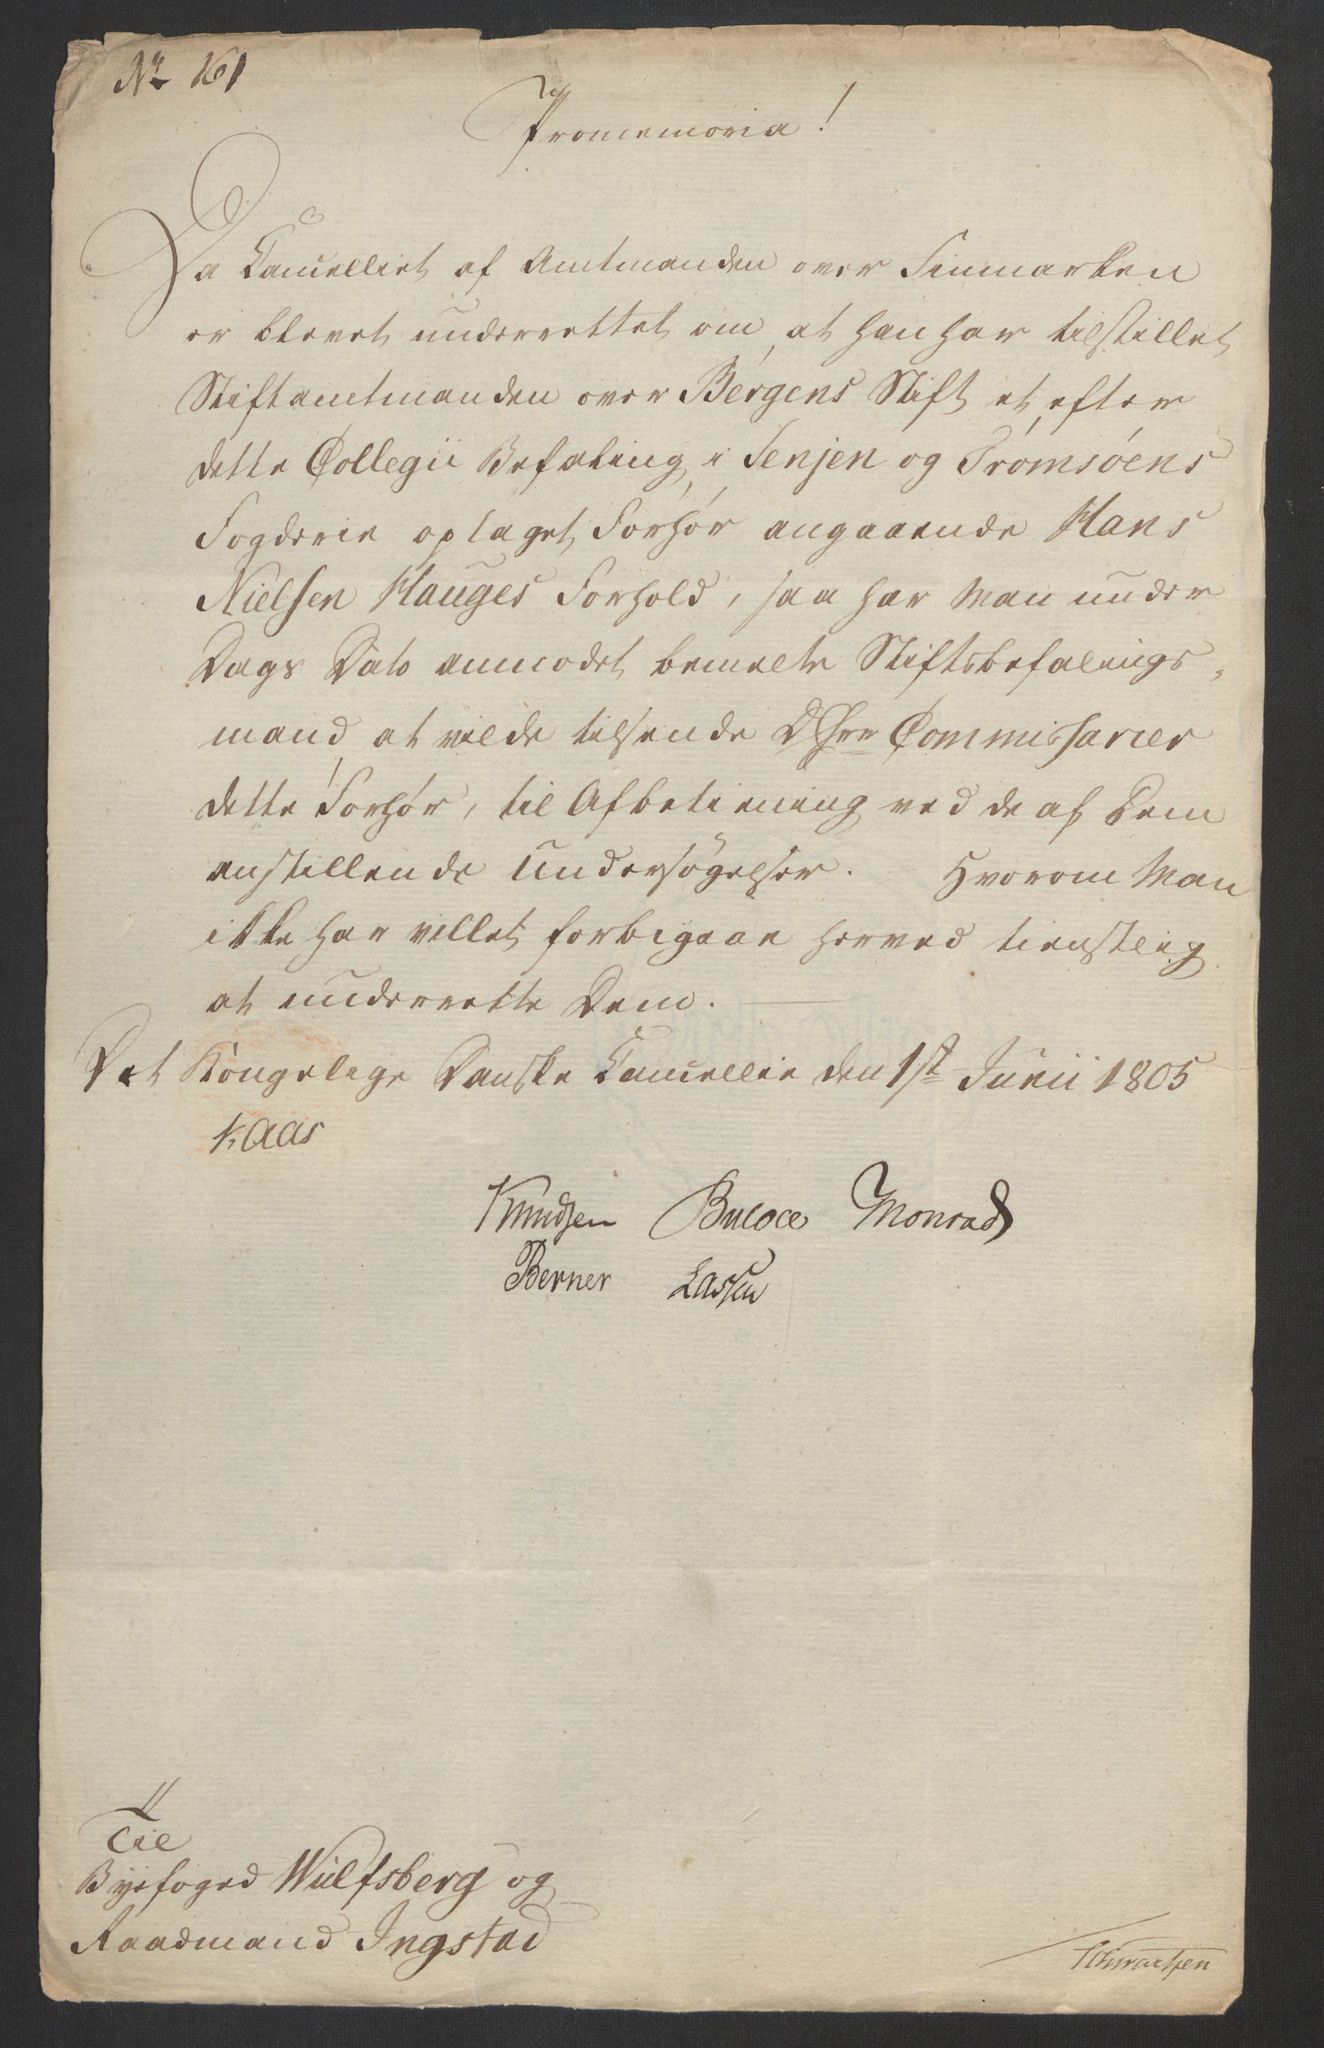 No 161
Promemoria!
Da Cancelliet af Amtmanden over Finmarken
er blevet underrettet om, at han har tilstillet
Stiftamtmanden over Bergens Stift et, efter
dette Collegii Befaling, i Senjen og Tromsøens
Fogderie optaget Forhør angaaende Hans
Nielsen Hauges Forhold, saa har Man under
Dags Dato anmodet bemelte Stiftsbefalings-
mand, at vilde tilsende DHrr Commissarier
dette Forhør, til Afbetiening ved de af Dem
anstillende Undersøgelser. Hvorom Man
ikke har villet forbigaae herved tienstlig
at underrette Dem.
Det Kongelige Danske Cancellie den 1st Junii 1805
Kaas
Knudsen Bülow Monrad
Berner Lassen
Til
Byefoged Wulfsberg og
Raadmand Ingstad